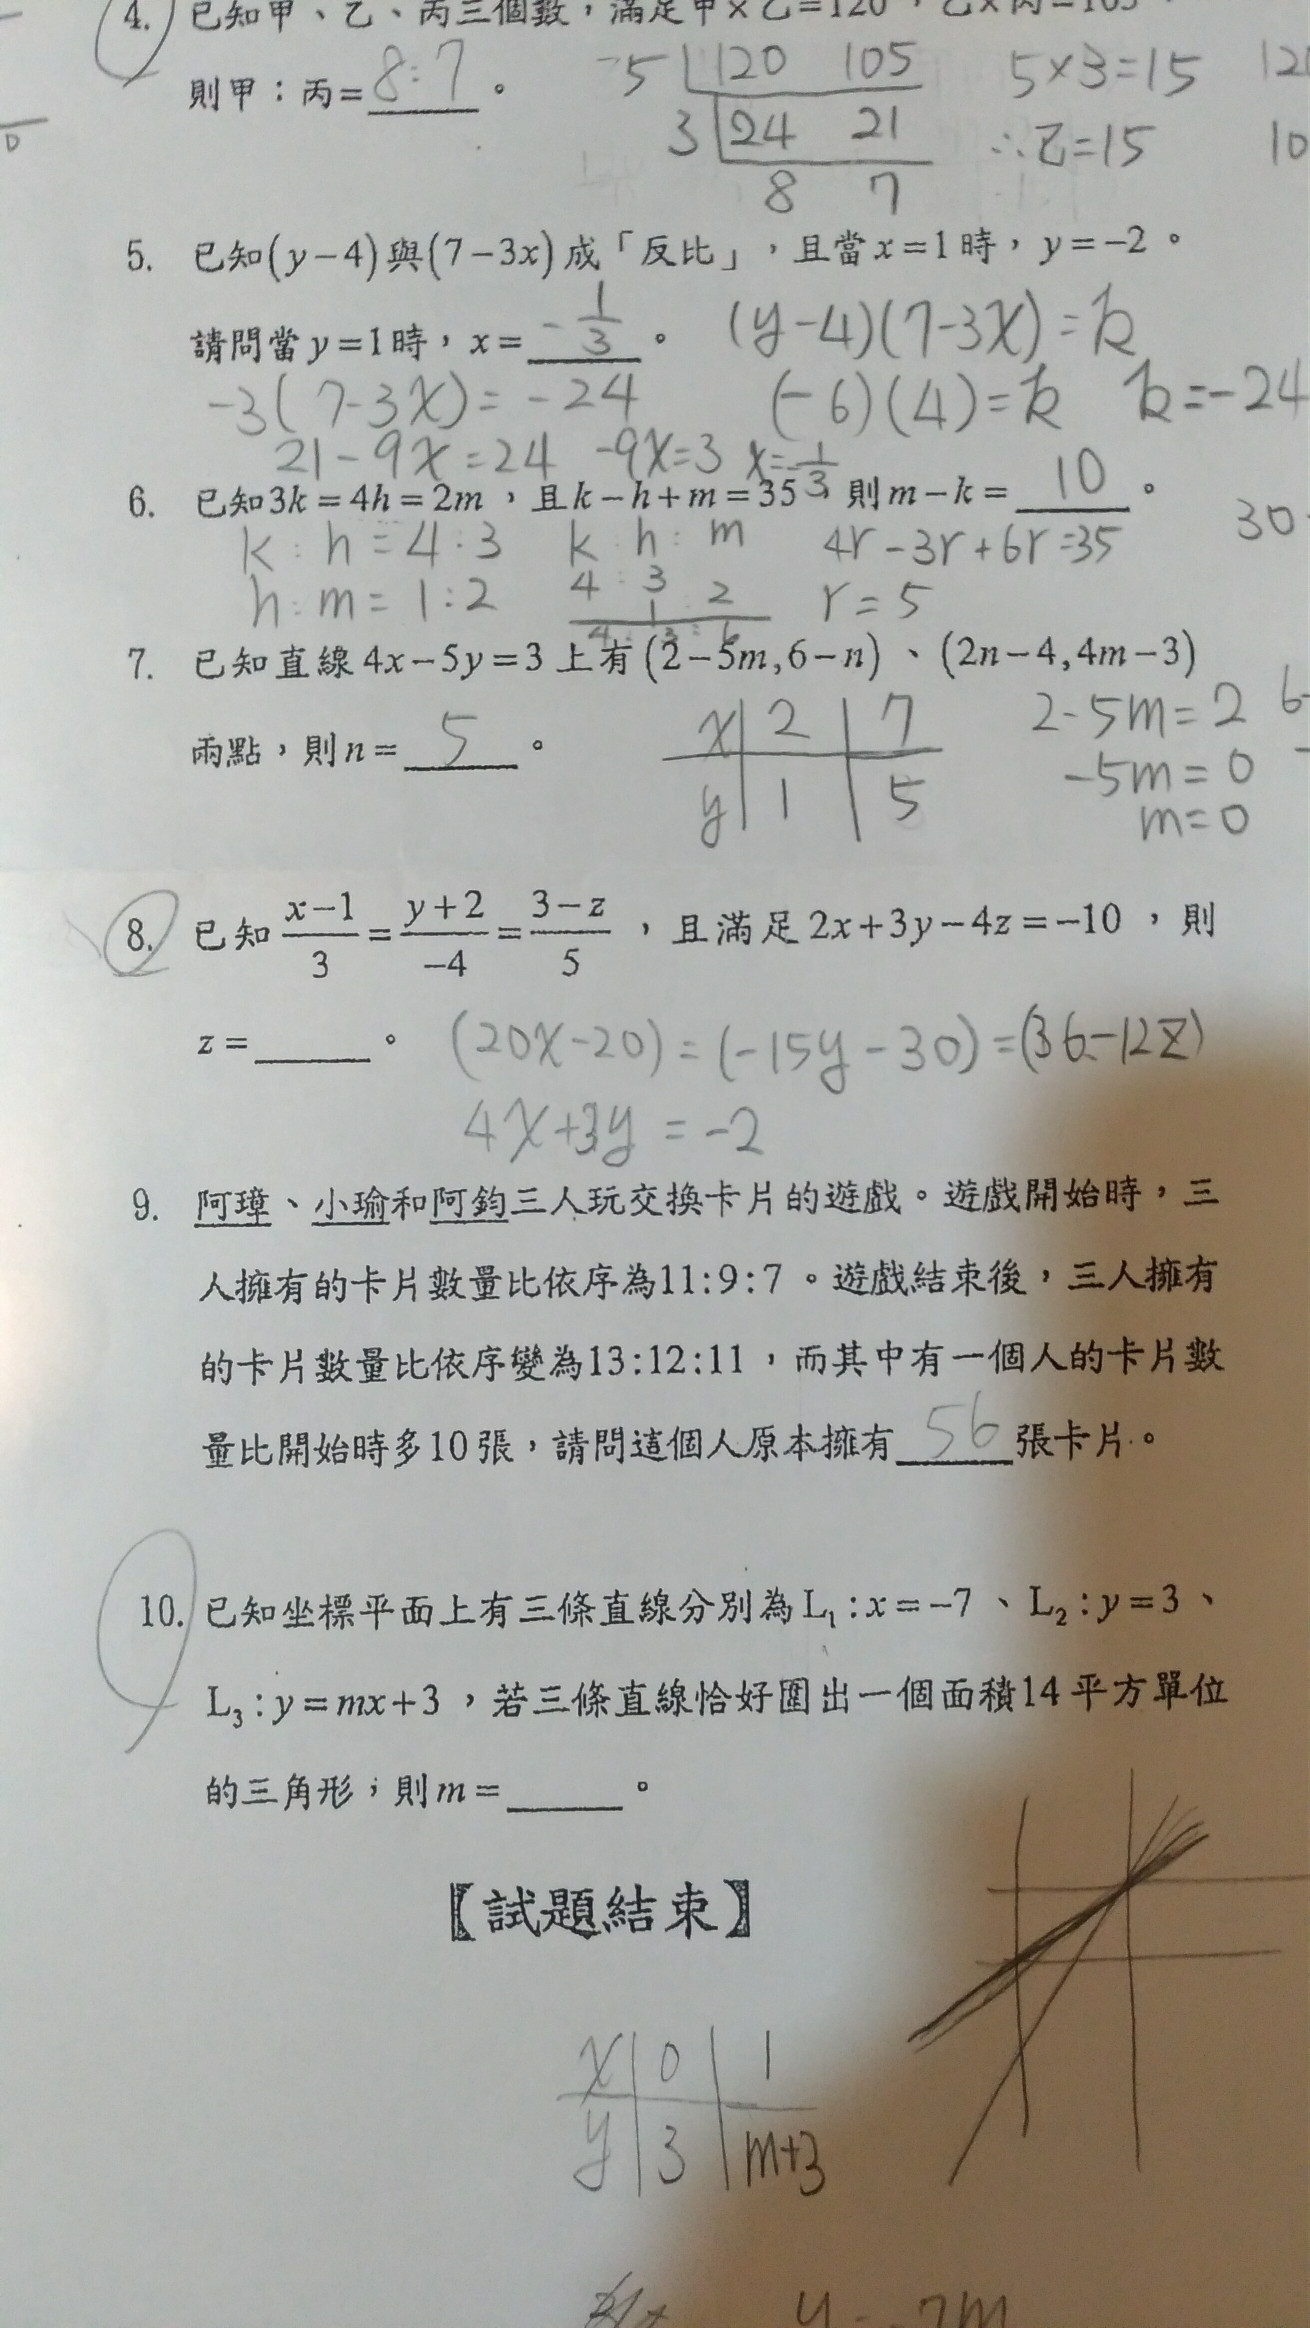 4. 已知甲、乙、丙三個數，滿足甲×乙=120，乙×丙=105，
則甲：丙=8:7。
5 120 105 5×3=15
3 24 21 ∴乙=15
8 7
5. 已知(y-4)與(7-3x)成「反比」，且當x=1時，y=-2。
請問當y=1時，x=-1/3。 (y-4)(7-3x)=k
-3(7-3x)=-24 (-6)(4)=k k=-24
21-9x=24 -9x=3 x=-1/3
6. 已知3k=4h=2m，且k-h+m=35，則m-k=10。
k:h=4:3 k h:m 4r-3r+6r=35 30
h:m=1:2 4:3 r=5
1:2
4:3:6
7. 已知直線4x-5y=3上有(2-5m,6-n)、(2n-4,4m-3)
兩點，則n=5。
x 2 7 2-5m=2
y 1 5 -5m=0
m=0
8. 已知 (x-1)/3=(y+2)/-4=(3-z)/5，且滿足2x+3y-4z=-10，則
z=＿＿＿。 (20x-20)=(-15y-30)=(36-12z)
4x+3y=-2
9. 阿璋、小瑜和阿鈞三人玩交換卡片的遊戲。遊戲開始時，三
人擁有的卡片數量比依序為11:9:7。遊戲結束後，三人擁有
的卡片數量比依序變為13:12:11，而其中有一個人的卡片數
量比開始時多10張，請問這個人原本擁有56張卡片。
10. 已知坐標平面上有三條直線分別為L₁:x=-7、L₂:y=3、
L₃:y=mx+3，若三條直線恰好圍出一個面積14平方單位
的三角形，則m=＿＿＿。
【試題結束】
x 0 1
y 3 m+3